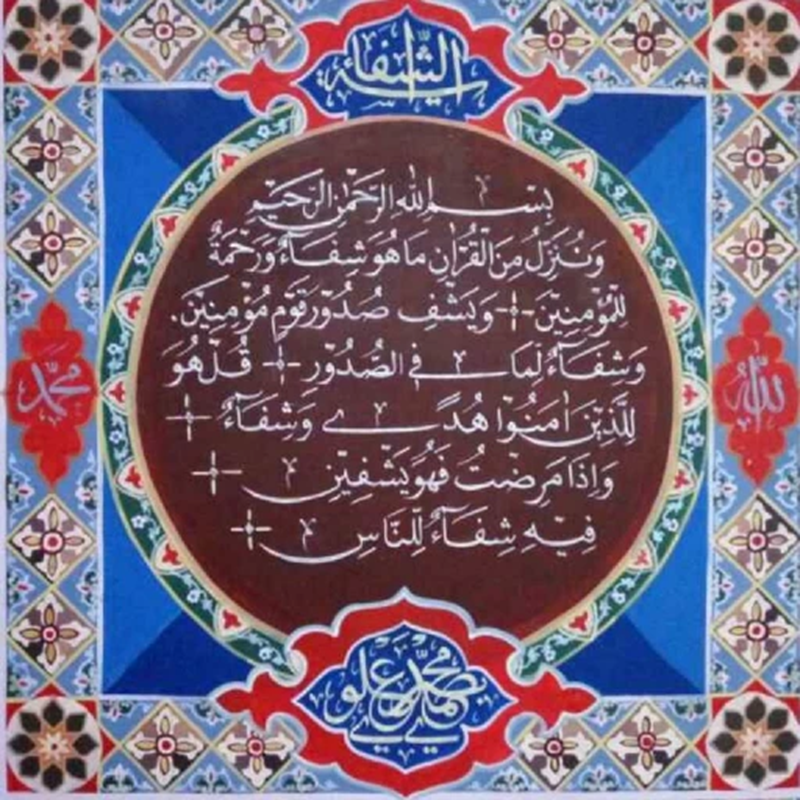 الشفاء
بِسْمِ اللهِ الرَّحْمٰنِ الرَّحِيْمِ
وَنُنَزِّلُ مِنَ الْقُرْاٰنِ مَا هُوَ شِفَآءٌ وَرَحْمَةٌ
لِلْمُؤْمِنِيْنَ وَيَشْفِ صُدُوْرَ قَوْمٍ مُؤْمِنِيْنَ.
وَشِفَآءٌ لِمَا فِي الصُّدُوْرِ قُلْ هُوَ
لِلَّذِيْنَ اٰمَنُوْا هُدًى وَشِفَآءٌ
وَاِذَا مَرِضْتُ فَهُوَ يَشْفِيْنِ
فِيْهِ شِفَآءٌ لِلنَّاسِ
الله
محمد